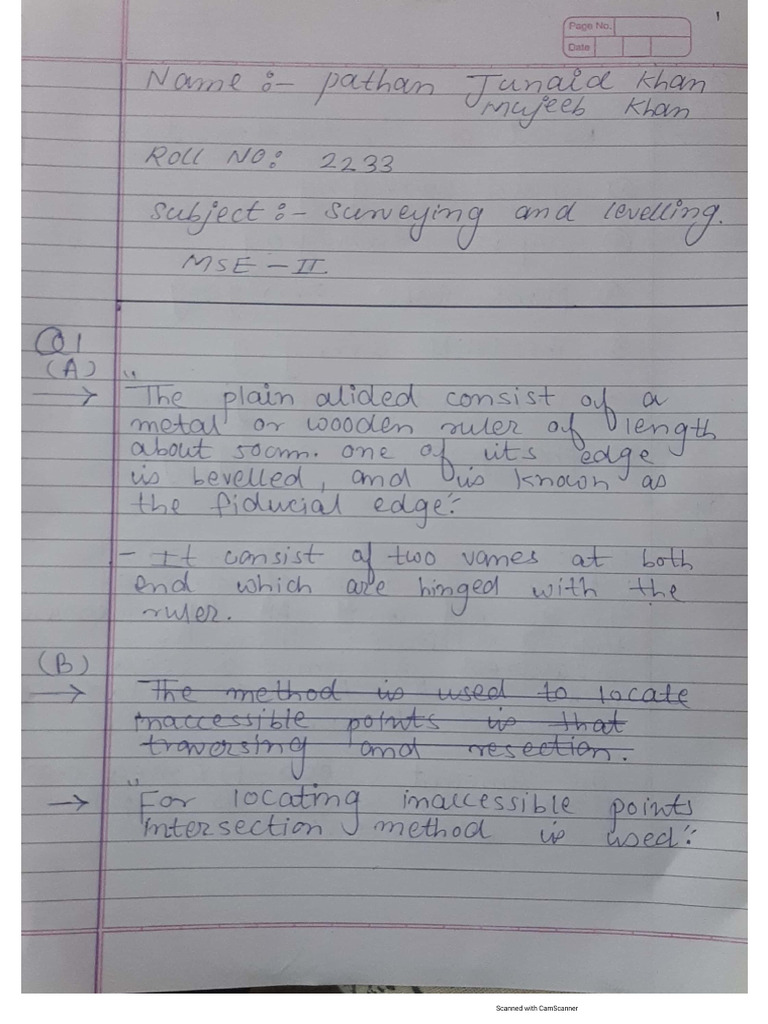 1
Page No.
Date
Name :- Pathan Junaid Khan
Mujeeb Khan
Roll NO: 2233
Subject :- Surveying and levelling.
MSE - II
Q1
(A)
→ "The plain alided consist of a
metal or wooden ruler of length
about 50cm. one of its edge
is bevelled, and is known as
the fiducial edge."
- It consist of two vanes at both
end which are hinged with the
ruler.
(B)
→ The method is used to locate
inaccessible points is that
traversing and resection.
→ "For locating inaccessible points
intersection method is used."
Scanned with CamScanner